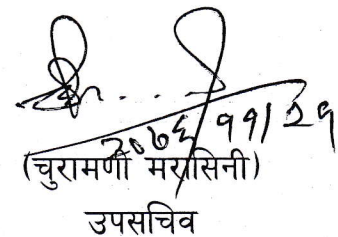 २०७६/११/२१
(चुरामणी मरासिनी)
उपसचिव